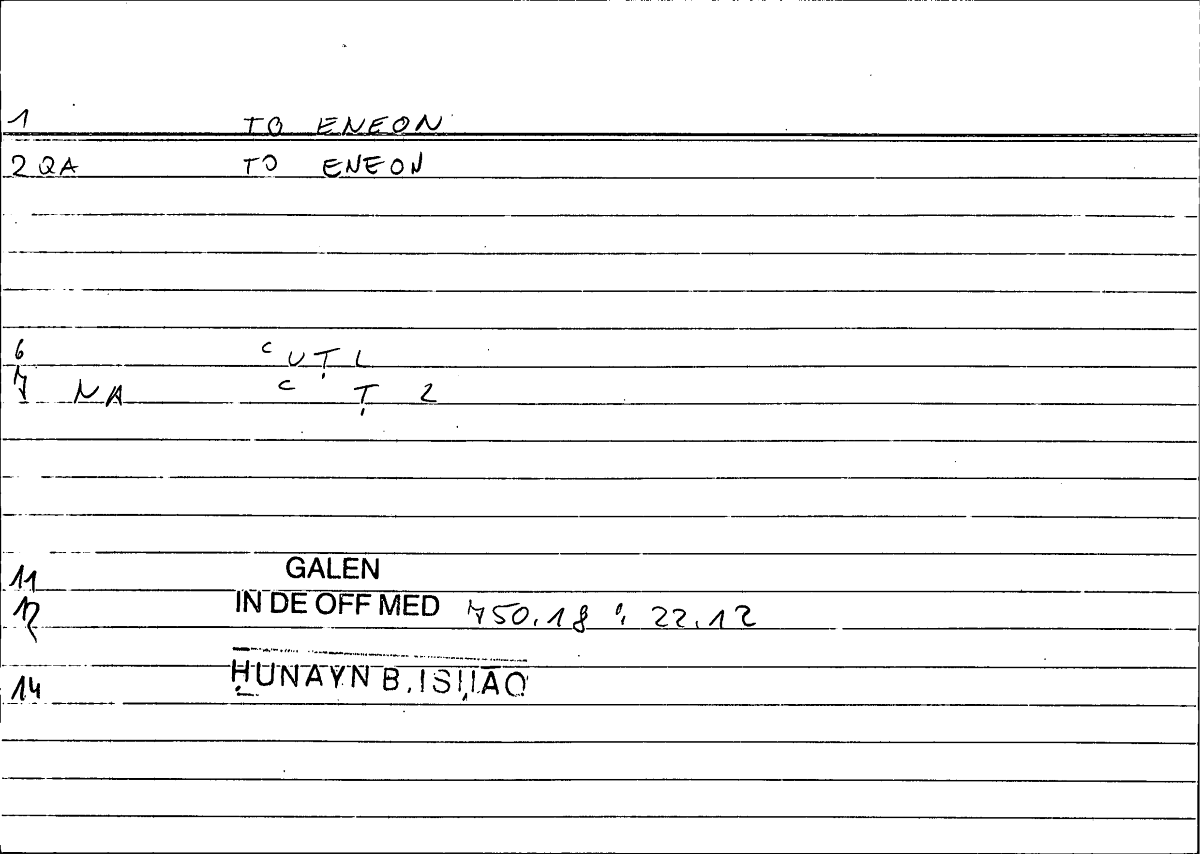 1 TO ENEON
2 QA TO ENEON
6 ʿUṬL
7 NA ʿ Ṭ 2
11 GALEN
12 IN DE OFF MED 750.18 ; 22.12
14 ḤUNAYN B. ISḤĀQ